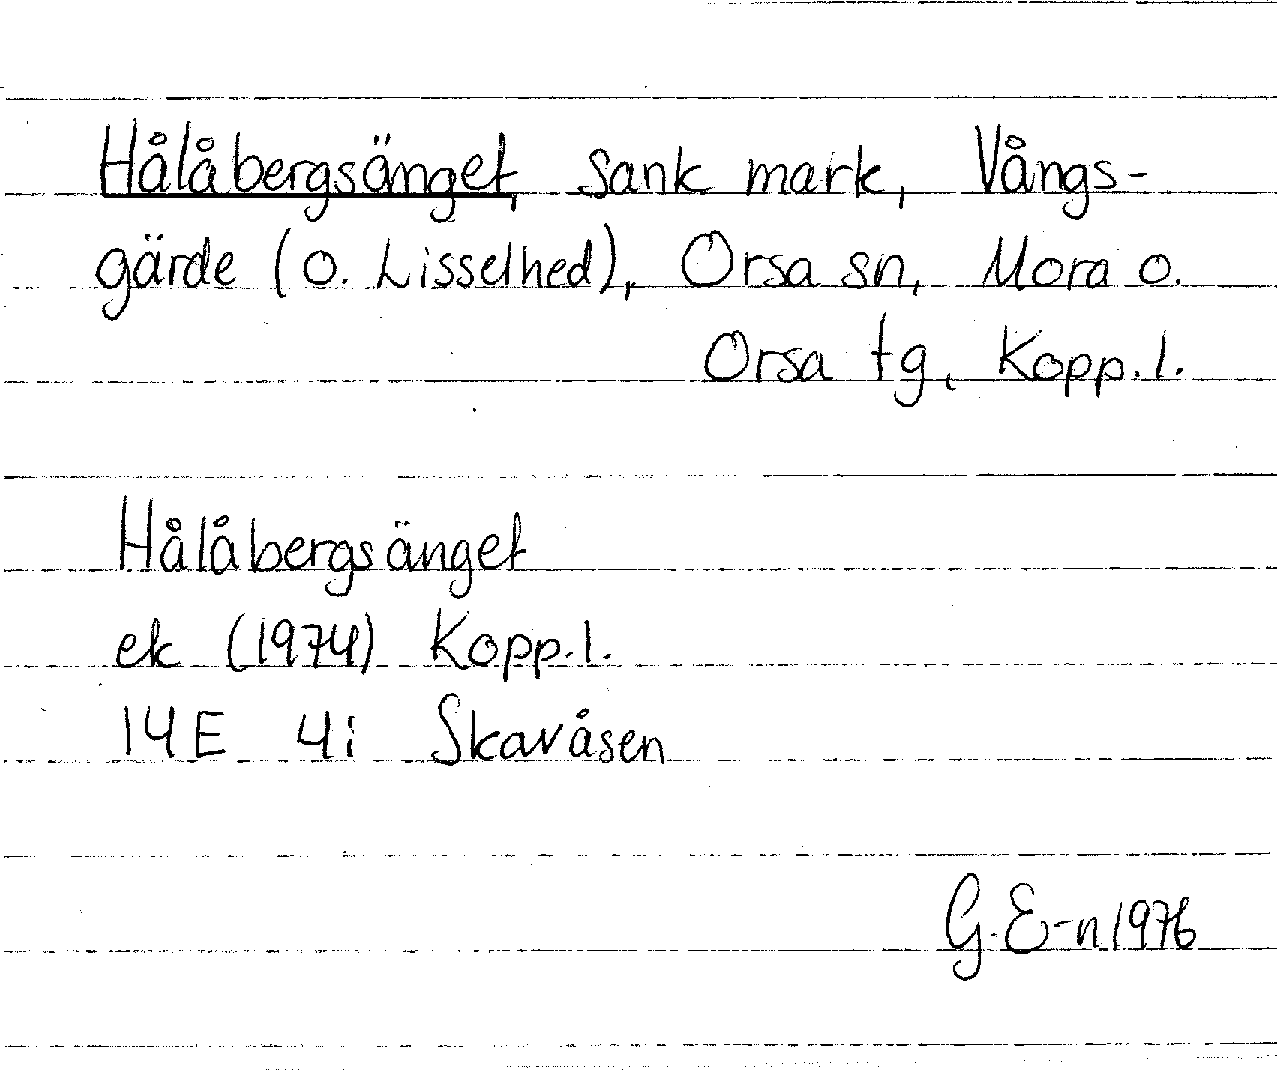 Hålåbergsänget, sank mark, Vångs-
gärde (o. Lisselhed), Orsa sn, Mora o.
Orsa tg, Kopp.l.
Hålåbergsänget
ek (1974) Kopp.l.
14E 4i Skavåsen
G.E-n 1976